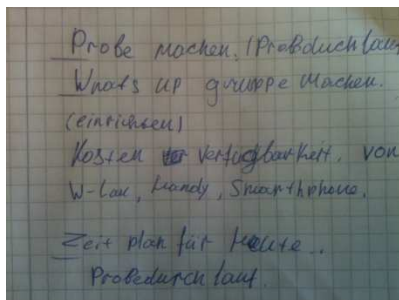 Probe machen. (Probduchlauf
Whats up gruuppe machen.
(einrichten)
Kosten verfügbarkeit. von
W-Lan, Handy, Smarthphone.
Zeit plan für Heute..
Probedurchlauf.